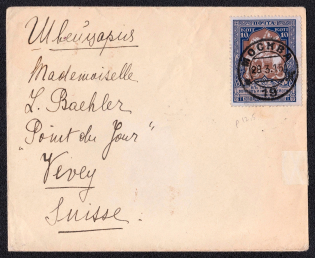 Швейцария
Mademoiselle
L. Baehler
"Point du Jour"
Vevey
Suisse.
ПОЧТА
10 10
МОСКВА
28.3.15
19